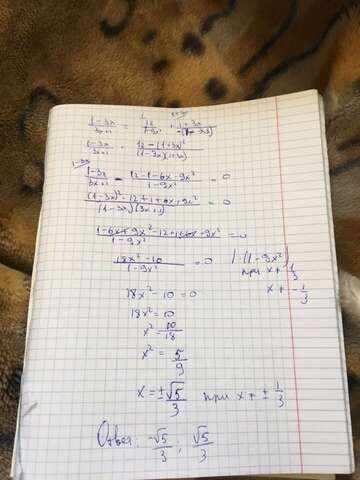 (1-3x)/(3x+1) = 12/(1-9x²) + (1+3x)/
(1-3x)/(3x+1) = (12-(1+3x)²)/((1-3x)(1+3x))
1-3x
(1-3x)/(3x+1) - (12-1-6x-9x²)/(1-9x²) = 0
((1-3x)²-12+1+6x+9x²)/((1-3x)(3x+1)) = 0
(1-6x+9x²-12+1+6x+9x²)/(1-9x²) = 0
(18x²-10)/(1-9x²) = 0 | ·(1-9x²)
при x ≠ 1/3
x ≠ -1/3
18x²-10=0
18x²=10
x² = 10/18
x² = 5/9
x = ±√5/3 при x ≠ ± 1/3
Ответ: -√5/3 ; √5/3